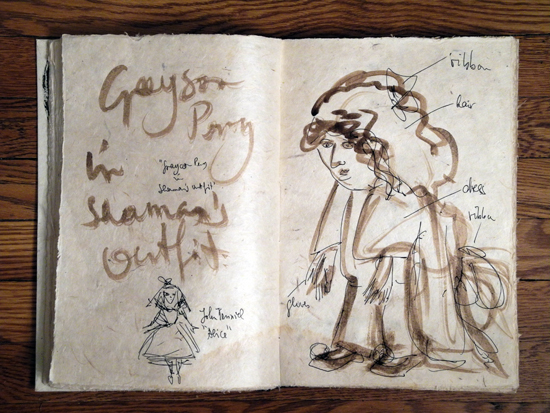 Grayson
Perry
in
shaman's
outfit.
"Grayson Perry
in
shaman's outfit"
John Tenniel
"Alice"
ribbon
hair
dress
ribbon
gloves